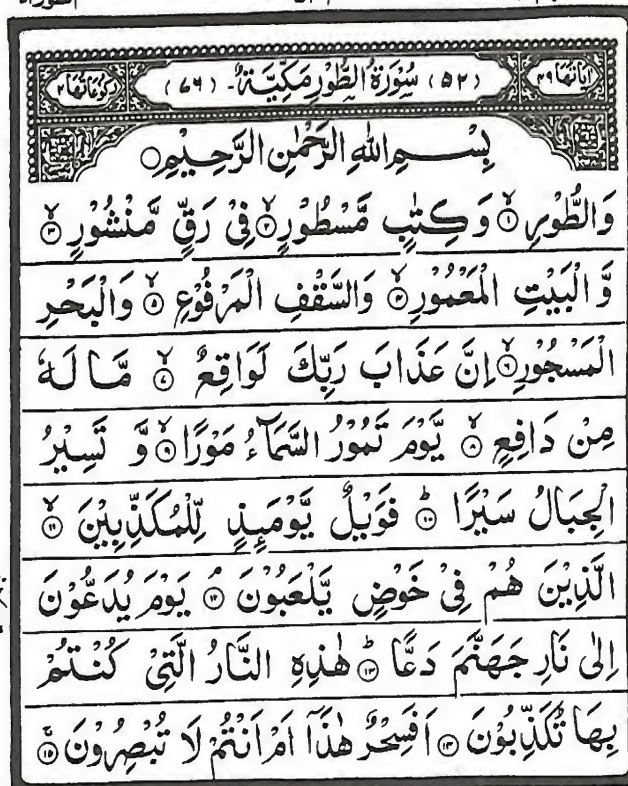 اٰيَاتُهَا ٤٩ (٥٢) سُوْرَةُ الطُّوْرِ مَكِّيَّةٌ - (٧٦) رُكُوْعَاتُهَا ٢
بِسْمِ اللّٰهِ الرَّحْمٰنِ الرَّحِيْمِ ○
وَالطُّوْرِ ۙ﴿۱﴾ وَكِتٰبٍ مَّسْطُوْرٍ ۙ﴿۲﴾ فِيْ رَقٍّ مَّنْشُوْرٍ ۙ﴿۳﴾
وَّالْبَيْتِ الْمَعْمُوْرِ ۙ﴿۴﴾ وَالسَّقْفِ الْمَرْفُوْعِ ۙ﴿۵﴾ وَالْبَحْرِ
الْمَسْجُوْرِ ۙ﴿۶﴾ اِنَّ عَذَابَ رَبِّكَ لَوَاقِعٌ ۙ﴿۷﴾ مَّا لَهٗ
مِنْ دَافِعٍ ۙ﴿۸﴾ يَّوْمَ تَمُوْرُ السَّمَآءُ مَوْرًا ۙ﴿۹﴾ وَّ تَسِيْرُ
الْجِبَالُ سَيْرًا ؕ﴿۱۰﴾ فَوَيْلٌ يَّوْمَئِذٍ لِّلْمُكَذِّبِيْنَ ۙ﴿۱۱﴾
الَّذِيْنَ هُمْ فِيْ خَوْضٍ يَّلْعَبُوْنَ ۘ﴿۱۲﴾ يَوْمَ يُدَعُّوْنَ
اِلٰى نَارِ جَهَنَّمَ دَعًّا ؕ﴿۱۳﴾ هٰذِهِ النَّارُ الَّتِيْ كُنْتُمْ
بِهَا تُكَذِّبُوْنَ ﴿۱۴﴾ اَفَسِحْرٌ هٰذَآ اَمْ اَنْتُمْ لَا تُبْصِرُوْنَ ۚ﴿۱۵﴾